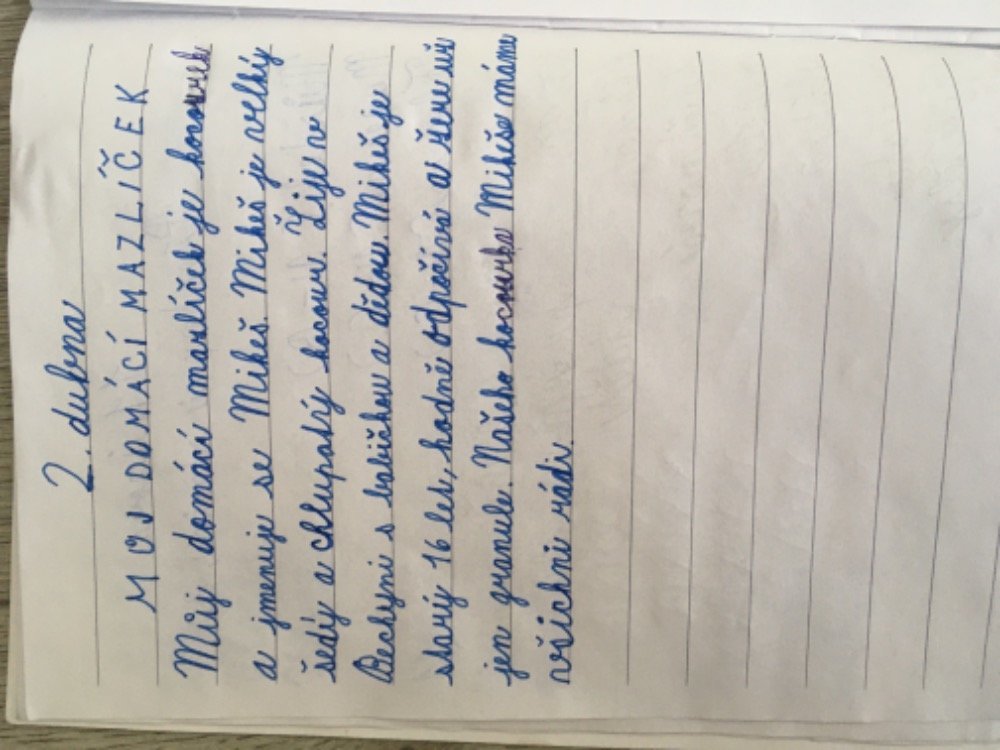 2. dubna
MOJ DOMÁCÍ MAZLÍČEK
Můj domácí mazlíček je kocourek
a jmenuje se Mikeš. Mikeš je velký
šedý a chlupatý kocour. Žije v
Bechyni s babičkou a dědou Mikeš je
starý 16 let, hodně odpočívá a žere už
jen granule. Našeho kocourka Mikeše máme
všichni rádi.